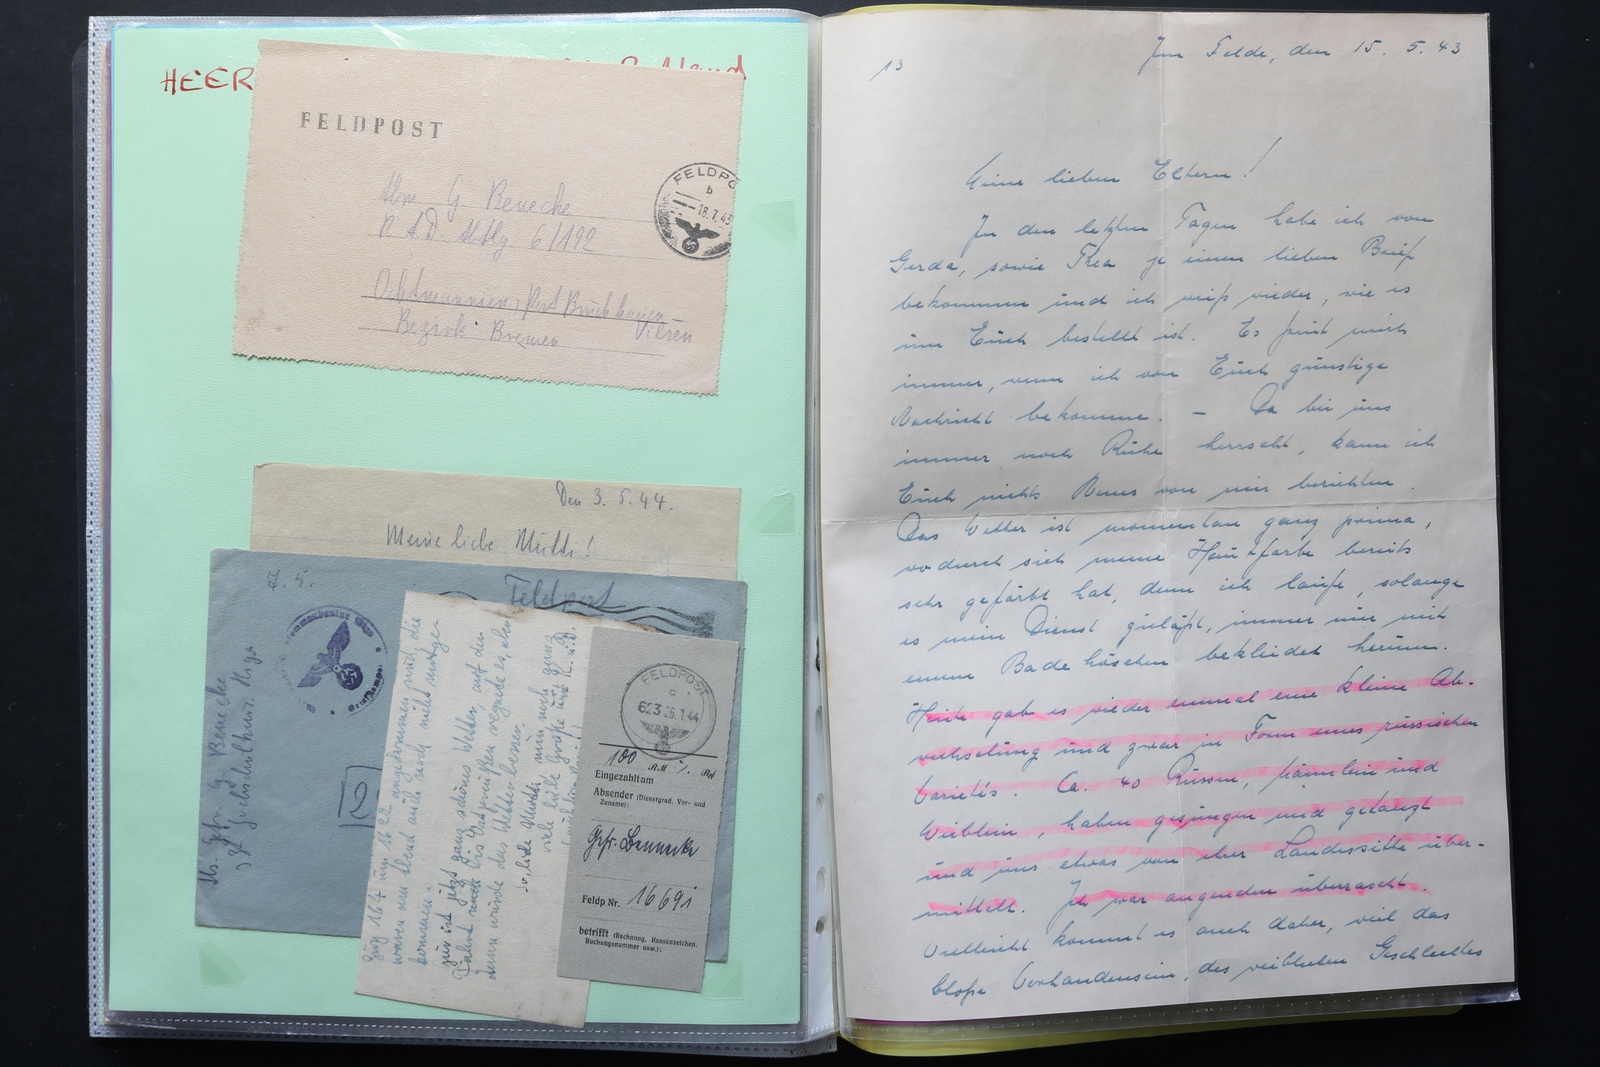 HEER
FELDPOST
G. Benecke
RAD. Abtlg 6/192
Bezirk Bremen
FELDPO
b
18.7.43
Den 3. 5. 44.
Meine liebe Mutti!
Feldpost
Gefr. G. Benecke
Zug 164 um 16.22 angekommen und die
waren am Abend auch noch mitge-
kommen.
hier ist jetzt ganz schönes Wetter, auf der
Fahrt
dann würde das Wetter besser.
liebe Mutti nun noch ganz
viele liebe Grüße und K.
FELDPOST
c
26.1.44
100 RM
Eingezahlt am
Absender (Dienstgrad, Vor- und
Zuname):
Gefr. Bennecke
Feldp Nr. 16691
betrifft (Rechnung, Kassenzeichen,
Buchungsnummer usw.):
13
Im Felde, den 15. 5. 43
Meine lieben Eltern!
In den letzten Tagen habe ich von
Gerda, sowie Thea je einen lieben Brief
bekommen und ich weiß wieder, wie es
um Euch bestellt ist. Es freut mich
immer, wenn ich von Euch günstige
Nachricht bekomme. – Da bei uns
immer noch Ruhe herrscht, kann ich
Euch nichts Neues von mir berichten.
Das Wetter ist momentan ganz prima,
wodurch sich meine Hautfarbe bereits
sehr gefärbt hat, denn ich laufe, solange
es mein Dienst zuläßt, immer nur mit
einem Badehöschen bekleidet herum.
Heute gab es wieder einmal eine kleine Ab-
wechselung und zwar in Form eines russischen
Varietés. Ca. 40 Russen, Männlein und
Weiblein, haben gesungen und getanzt
und uns etwas von ihrer Landessitte über-
mittelt. Ich war angenehm überrascht.
Vielleicht kommt es auch daher, weil das
bloße Vorhandensein, des weiblichen Geschlechtes